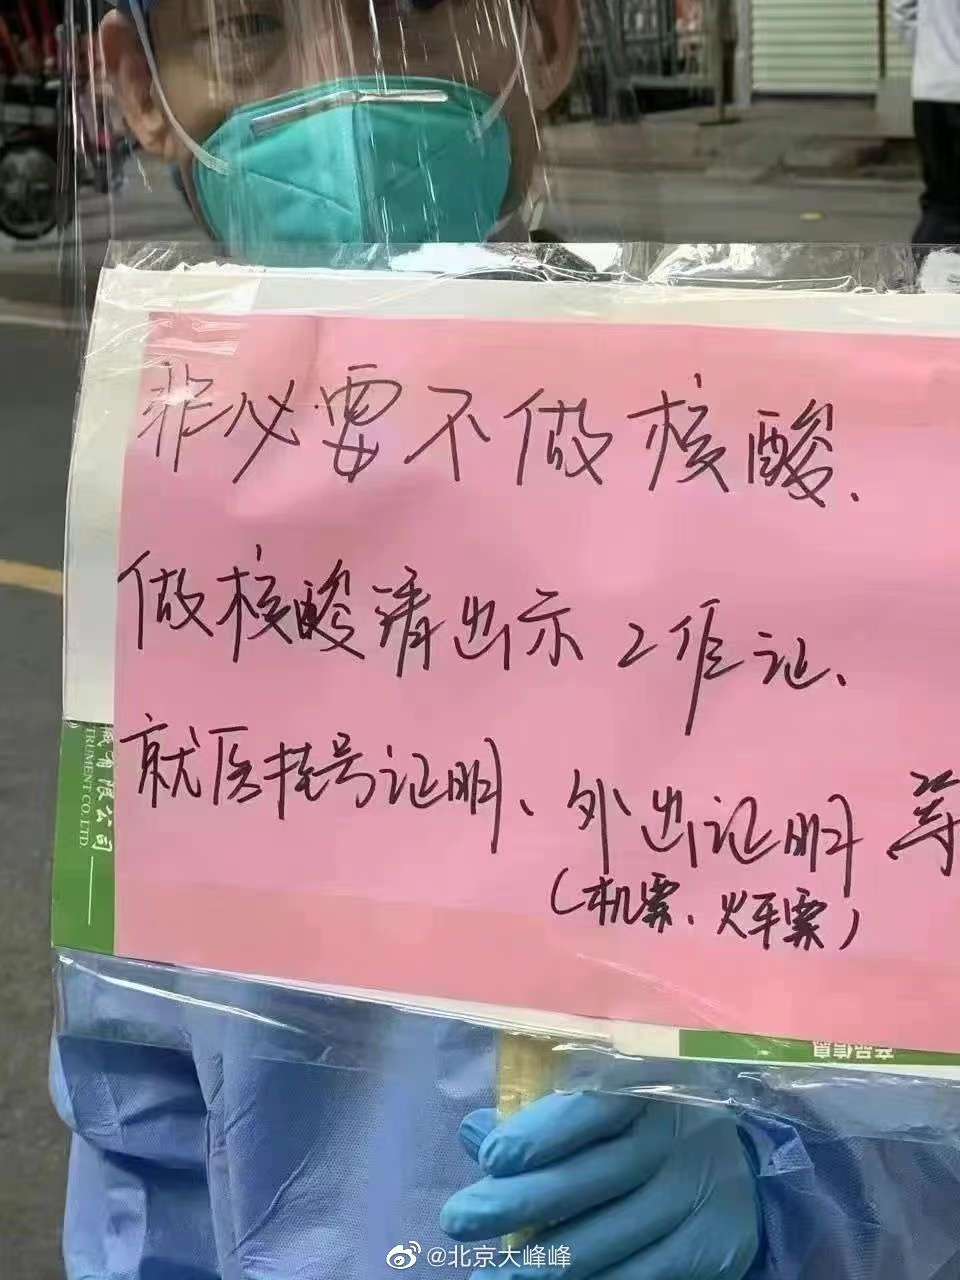 非必要不做核酸.
做核酸请出示工作证、
就医挂号证明、外出证明等
(机票、火车票)
械有限公司
TRUMENT CO.,LTD.
产品信息
@北京大峰峰